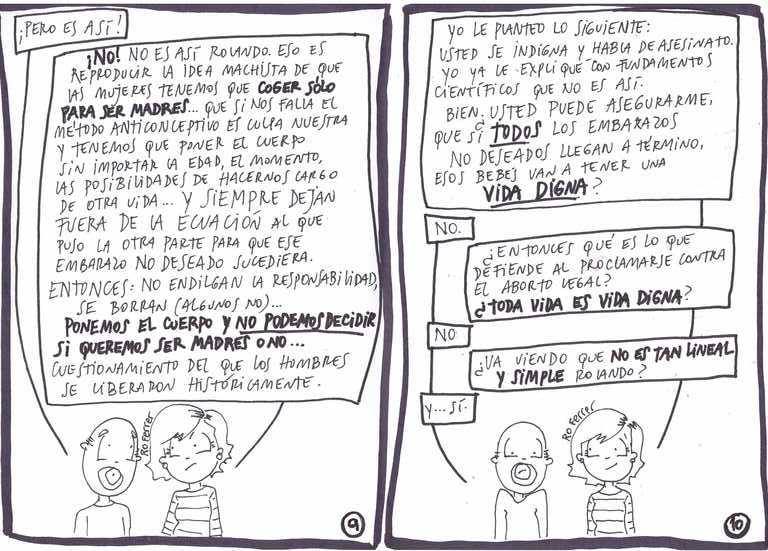 ¡PERO ES ASÍ!
¡NO! NO ES ASÍ ROLANDO. ESO ES
REPRODUCIR LA IDEA MACHISTA DE QUE
LAS MUJERES TENEMOS QUE COGER SÓLO
PARA SER MADRES... QUE SI NOS FALLA EL
MÉTODO ANTICONCEPTIVO ES CULPA NUESTRA
Y TENEMOS QUE PONER EL CUERPO
SIN IMPORTAR LA EDAD, EL MOMENTO,
LAS POSIBILIDADES DE HACERNOS CARGO
DE OTRA VIDA... Y SIEMPRE DEJAN
FUERA DE LA ECUACIÓN AL QUE
PUSO LA OTRA PARTE PARA QUE ESE
EMBARAZO NO DESEADO SUCEDIERA.
ENTONCES: NO ENDILGAN LA RESPONSABILIDAD,
SE BORRAN (ALGUNOS NO)...
PONEMOS EL CUERPO Y NO PODEMOS DECIDIR
SI QUEREMOS SER MADRES O NO...
CUESTIONAMIENTO DEL QUE LOS HOMBRES
SE LIBERARON HISTÓRICAMENTE.
Ro Ferrer
9
YO LE PLANTEO LO SIGUIENTE:
USTED SE INDIGNA Y HABLA DE ASESINATO.
YO YA LE EXPLIQUÉ CON FUNDAMENTOS
CIENTÍFICOS QUE NO ES ASÍ.
BIEN. USTED PUEDE ASEGURARME,
QUE SI ¿TODOS LOS EMBARAZOS
NO DESEADOS LLEGAN A TÉRMINO,
ESOS BEBES VAN A TENER UNA
VIDA DIGNA?
NO.
¿ENTONCES QUÉ ES LO QUE
DEFIENDE AL PROCLAMARSE CONTRA
EL ABORTO LEGAL?
¿TODA VIDA ES VIDA DIGNA?
NO
¿VA VIENDO QUE NO ES TAN LINEAL
Y SIMPLE ROLANDO?
Y... SÍ.
Ro Ferrer
10